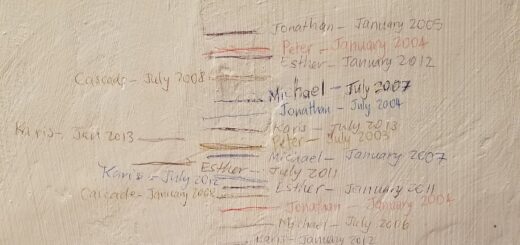 Jonathan - January 2005
Peter - January 2004
Esther - January 2012
Cascade - July 2008
Michael - July 2007
Jonathan - July 2004
Karis - July 2013
Karis - Jan 2013
Peter - July 2003
Michael - January 2007
Esther - July 2011
Karis - July 2012
Esther - January 2011
Cascade - January 2008
Jonathan - January 2004
Michael - July 2006
Karis - January 2012